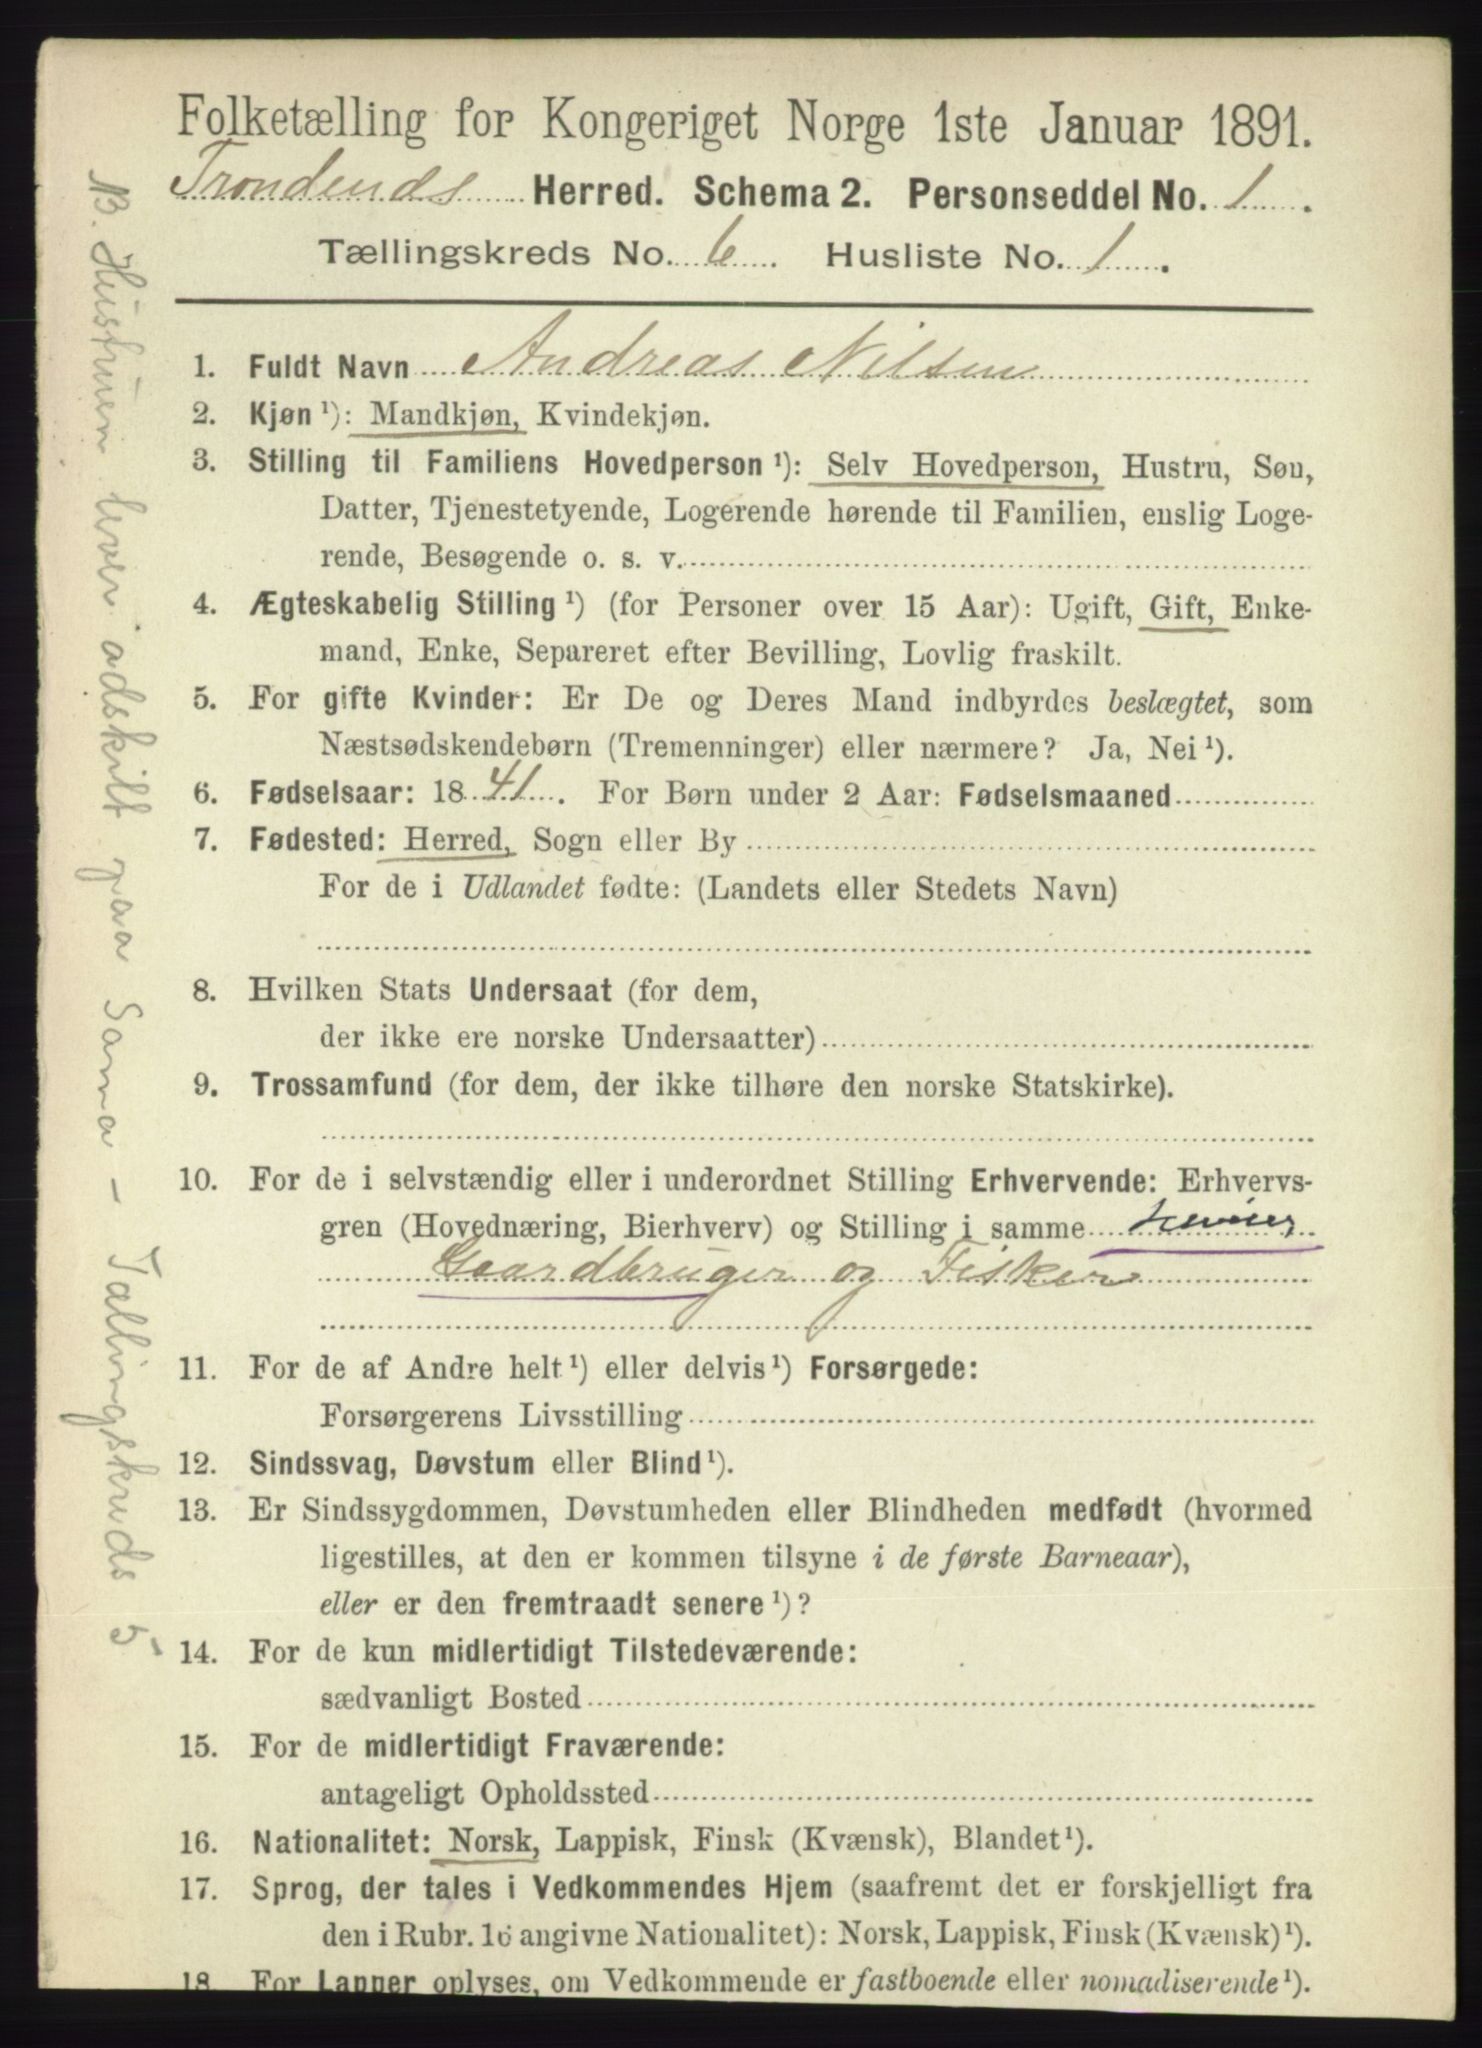 Folketælling for Kongeriget Norge 1ste Januar 1891.
Trondends Herred. Schema 2. Personseddel No. 1.
Tællingskreds No. 6. Husliste No. 1.
1. Fuldt Navn Andreas Nilsen
2. Kjøn ¹): Mandkjøn, Kvindekjøn.
3. Stilling til Familiens Hovedperson ¹): Selv Hovedperson, Hustru, Søn,
Datter, Tjenestetyende, Logerende hørende til Familien, enslig Loge-
rende, Besøgende o. s. v.
4. Ægteskabelig Stilling ¹) (for Personer over 15 Aar): Ugift, Gift, Enke-
mand, Enke, Separeret efter Bevilling, Lovlig fraskilt.
5. For gifte Kvinder: Er De og Deres Mand indbyrdes beslægtet, som
Næstsødskendebørn (Tremenninger) eller nærmere? Ja, Nei ¹).
6. Fødselsaar: 1841. For Børn under 2 Aar: Fødselsmaaned
7. Fødested: Herred, Sogn eller By
For de i Udlandet fødte: (Landets eller Stedets Navn)
8. Hvilken Stats Undersaat (for dem,
der ikke ere norske Undersaatter)
9. Trossamfund (for dem, der ikke tilhøre den norske Statskirke).
10. For de i selvstændig eller i underordnet Stilling Erhvervende: Erhvervs-
gren (Hovednæring, Bierhverv) og Stilling i samme
Gaardbruger og Fisker
11. For de af Andre helt ¹) eller delvis ¹) Forsørgede:
Forsørgerens Livsstilling
12. Sindssvag, Døvstum eller Blind ¹).
13. Er Sindssygdommen, Døvstumheden eller Blindheden medfødt (hvormed
ligestilles, at den er kommen tilsyne i de første Barneaar),
eller er den fremtraadt senere ¹)?
14. For de kun midlertidigt Tilstedeværende:
sædvanligt Bosted
15. For de midlertidigt Fraværende:
antageligt Opholdssted
16. Nationalitet: Norsk, Lappisk, Finsk (Kvænsk), Blandet ¹).
17. Sprog, der tales i Vedkommendes Hjem (saafremt det er forskjelligt fra
den i Rubr. 16 angivne Nationalitet): Norsk, Lappisk, Finsk (Kvænsk) ¹).
18. For Lapper oplyses, om Vedkommende er fastboende eller nomadiserende ¹).
NB. Hustruen lever adskilt paa Sama - Tællingskreds 5